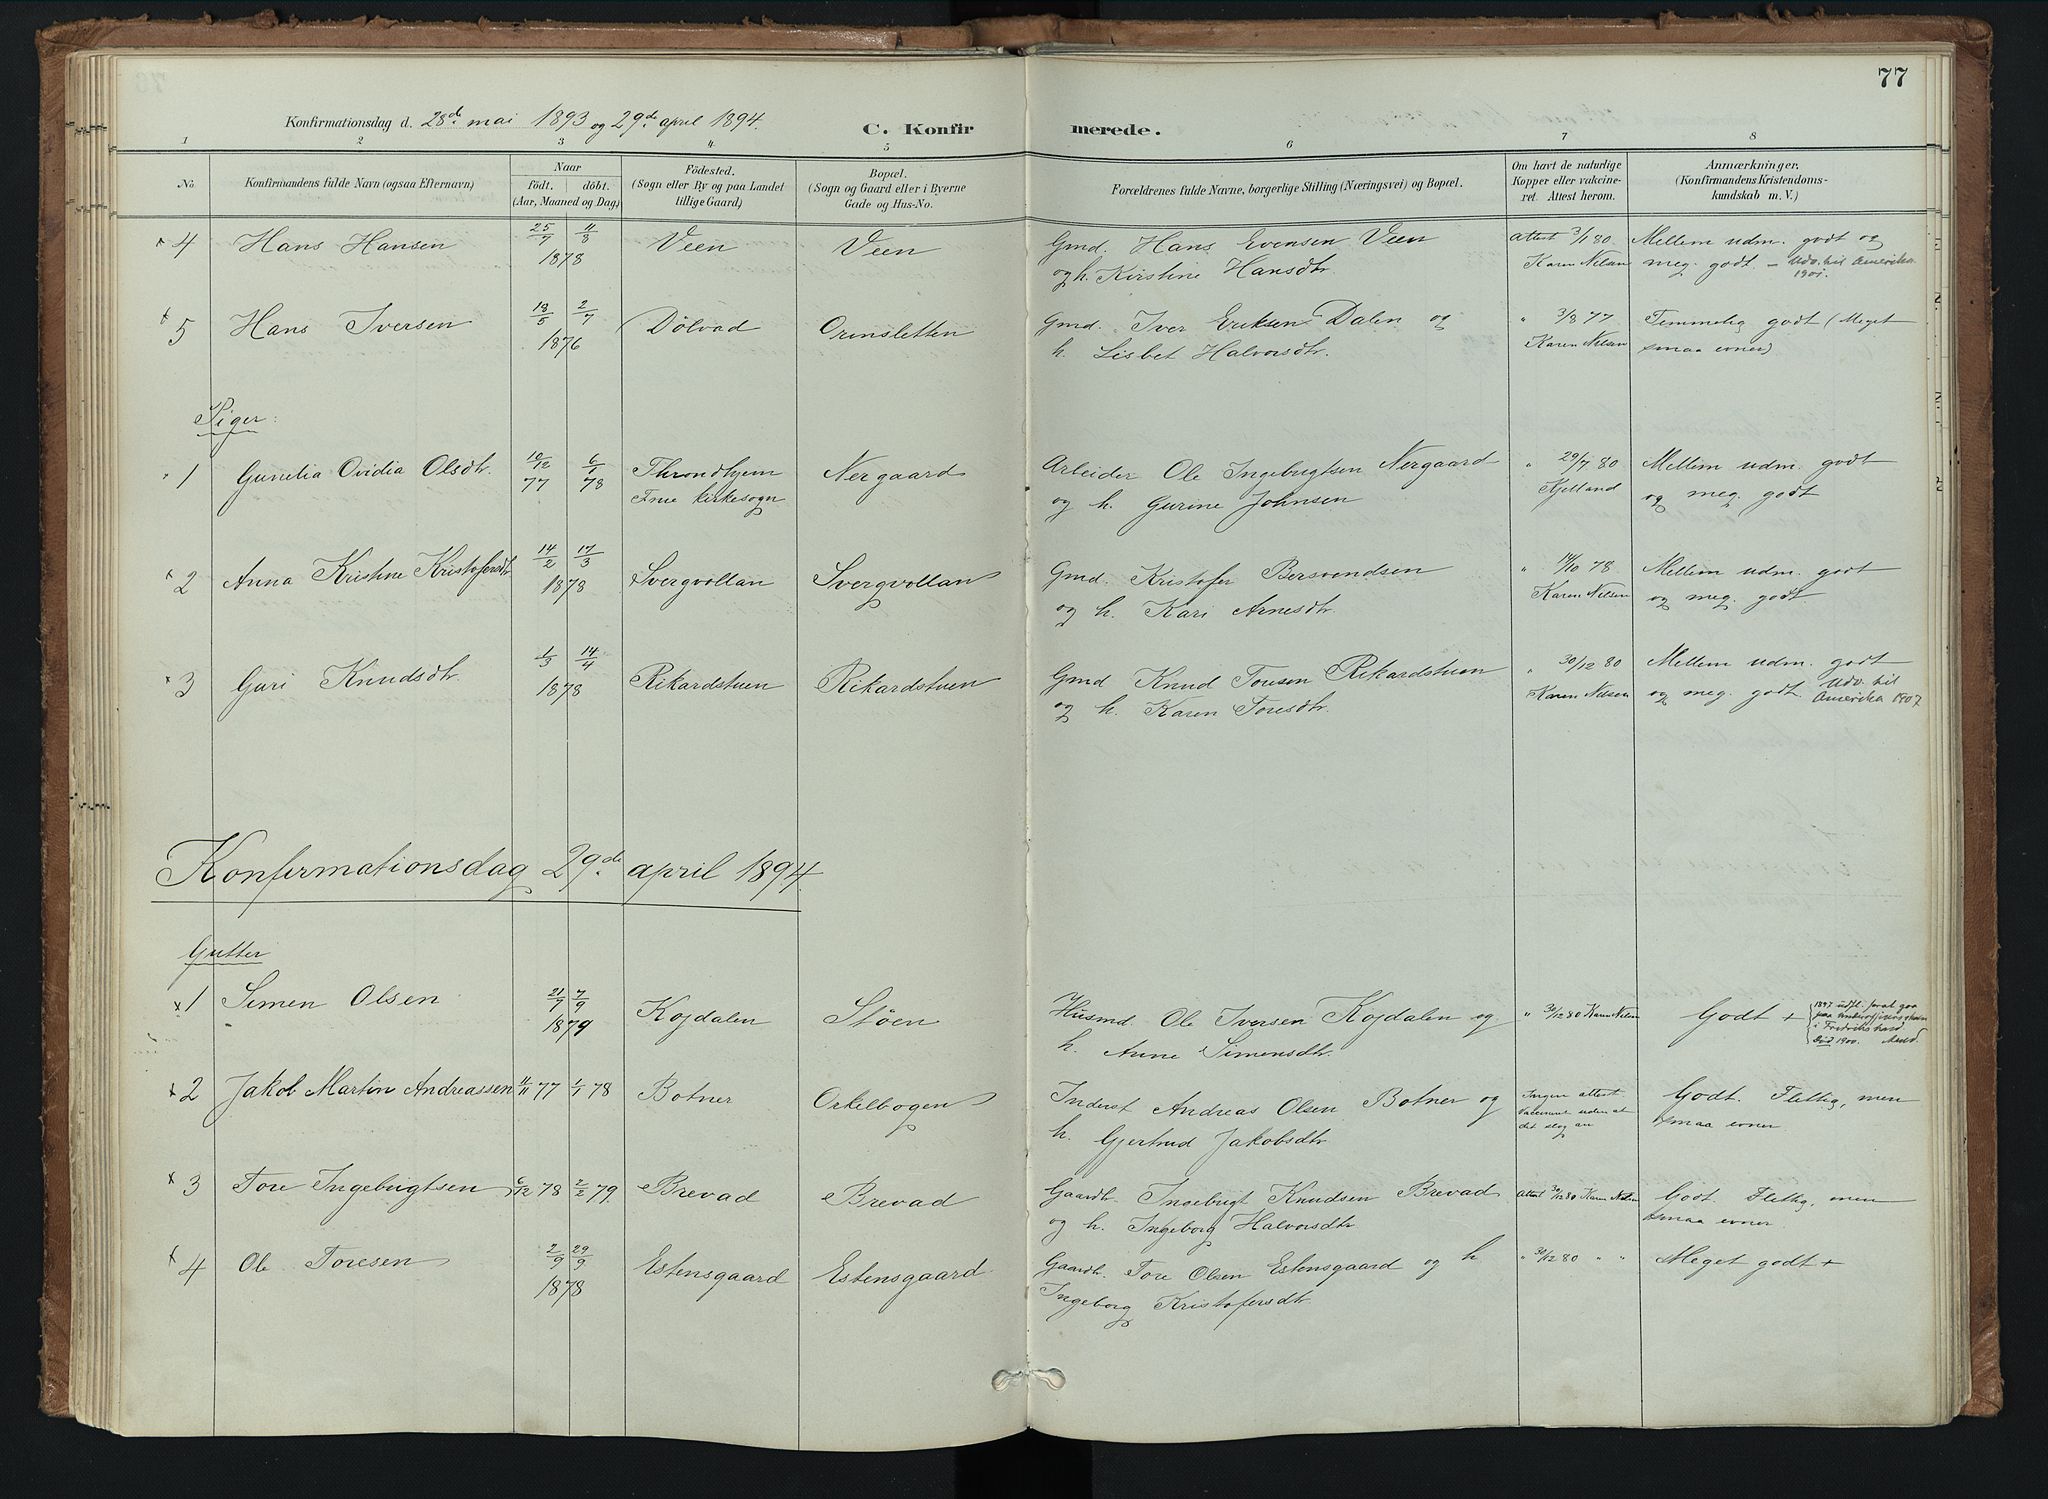 77
Konfirmationsdag d. 28de mai 1893 og 29de april 1894. C. Konfirmerede.
1 2 3 4 5 6 7 8
No
Konfirmandens fulde Navn (ogsaa Efternavn)
Naar
født. döbt.
(Aar, Maaned og Dag)
Födested.
(Sogn eller By og paa Landet
tillige Gaard)
Bopæl.
(Sogn og Gaard eller i Byerne
Gade og Hus-No.
Forældrenes fulde Navne, borgerlige Stilling (Næringsvei) og Bopæl.
Om havt de naturlige
Kopper eller vakcine-
ret. Attest herom.
Anmærkninger.
(Konfirmandens Kristendoms-
kundskab m. V.)
4 Hans Hansen 25/7 11/8 Veen Veen Gmd. Hans Evensen Veen attest 3/1 80 Mellem udm. godt og
1878 og h. Kirstine Hansdtr Karen Nilsen meg. godt. – Udv. til Amerika
1901.
5 Hans Iversen 18/5 2/7 Dölvad Orensletten Gmd. Iver Eriksen Dalen og " 3/8 77 Temmelig godt (Meget
1876 h. Lisbet Halvorsdtr. Karen Nilsen smaa evner)
Piger:
1 Gunelia Ovidia Olsdtr. 10/12 6/1 Throndhjem Nergaard Arbeider Ole Ingebrigtsen Nergaard " 29/7 80 Mellem udm. godt
77 78 Frue kirkesogn og h. Gurine Johnsen Kjelland og meg. godt
2 Anna Kristine Kristofersdtr 14/2 17/3 Svergvollan Svergvollan Gmd. Kristofer Bersvendsen " 14/10 78 Mellem udm. godt
1878 og h. Kari Arnesdtr Karen Nilsen og meg. godt
3 Guri Knudsdtr. 1/3 14/4 Rikardstuen Rikardstuen Gmd Knud Toresen Rikardstuen " 30/12 80 Mellem udm. godt
1878 og h. Karen Toresdtr. Karen Nilsen og meg. godt. Udv. til
Amerika 1907
Konfirmationsdag 29de april 1894.
Gutter
1 Simen Olsen 21/7 7/9 Kojdalen Støen Husmd. Ole Iversen Kojdalen og " 30/12 80 Karen Nilsen Godt +
1879 h. Anne Simensdtr.
1897 udfl. for at gaa
i Fredrikshald.
Död 1900.
2 Jakob Martin Andreassen 11/11 77 1/1 78 Botner Orkelbogen Inderst Andreas Olsen Botner og Ingen attest. Godt. Flittig, men
h. Gjertrud Jakobsdtr Vaccineret uden at smaa evner.
det slog an
3 Tore Ingebrigtsen 6/12 78 2/2 79. Brevad Brevad Gaardbr. Ingebrigt Knudsen Brevad attest 30/12 80 Karen Nilsen Godt. Flittig, men
og h. Ingeborg Halvorsdtr smaa evner.
4 Ole Toresen 2/9 29/9 Estensgaard Estensgaard Gaardbr. Tore Olsen Estensgaard og h " 30/12 80 " " Meget godt +
1878 Ingeborg Kristofersdtr.